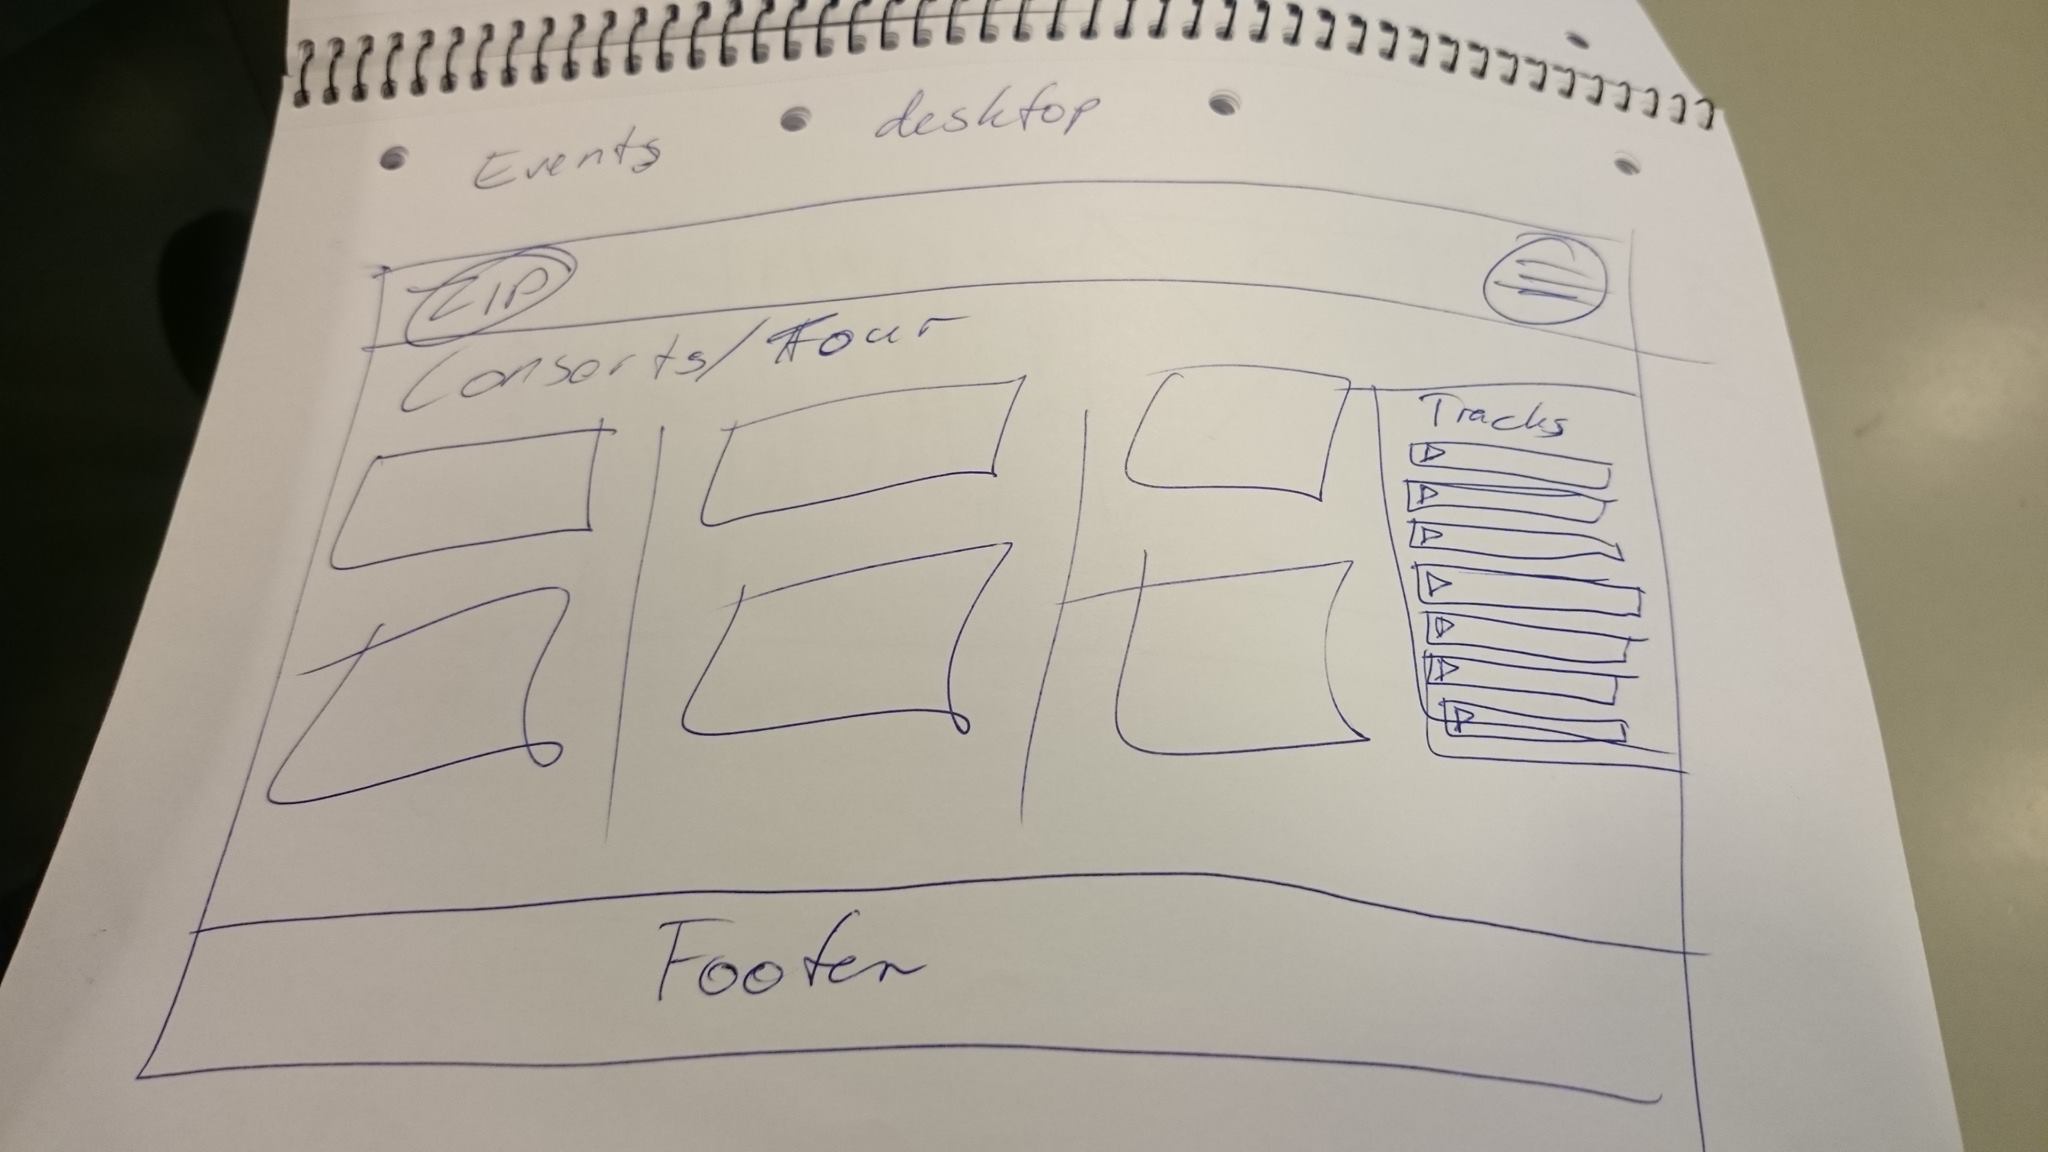 Events desktop
ZIP
Conserts/Tour
Tracks
Footer